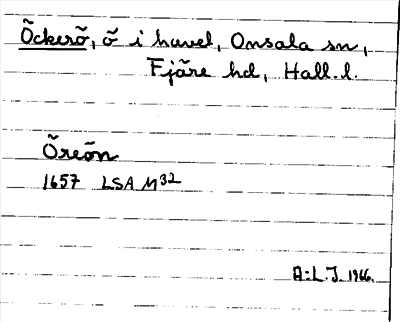 Öckerö, ö i havet, Onsala sn,
Fjäre hd, Hall. l.
Öreön
1657 LSA M32
A:L.J. 1966.